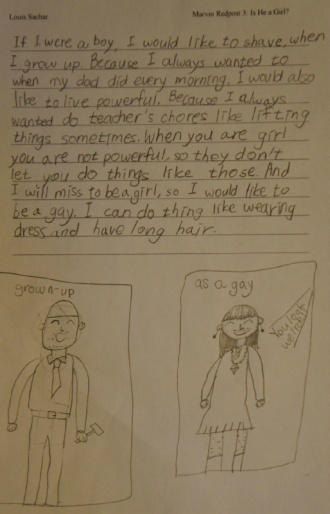 Louis Sachar
Marvin Redpost 3: Is He a Girl?
If I were a boy, I would like to shave, when
I grow up. Because I always wanted to
when my dad did every morning. I would also
like to live powerful. Because I always
wanted do teacher's chores like lifting
things sometimes. When you are girl
you are not powerful, so they don't
let you do things like those. And
I will miss to be a girl, so I would like to
be a gay. I can do thing like wearing
dress and have long hair.
grown-up
as a gay
You look
weird